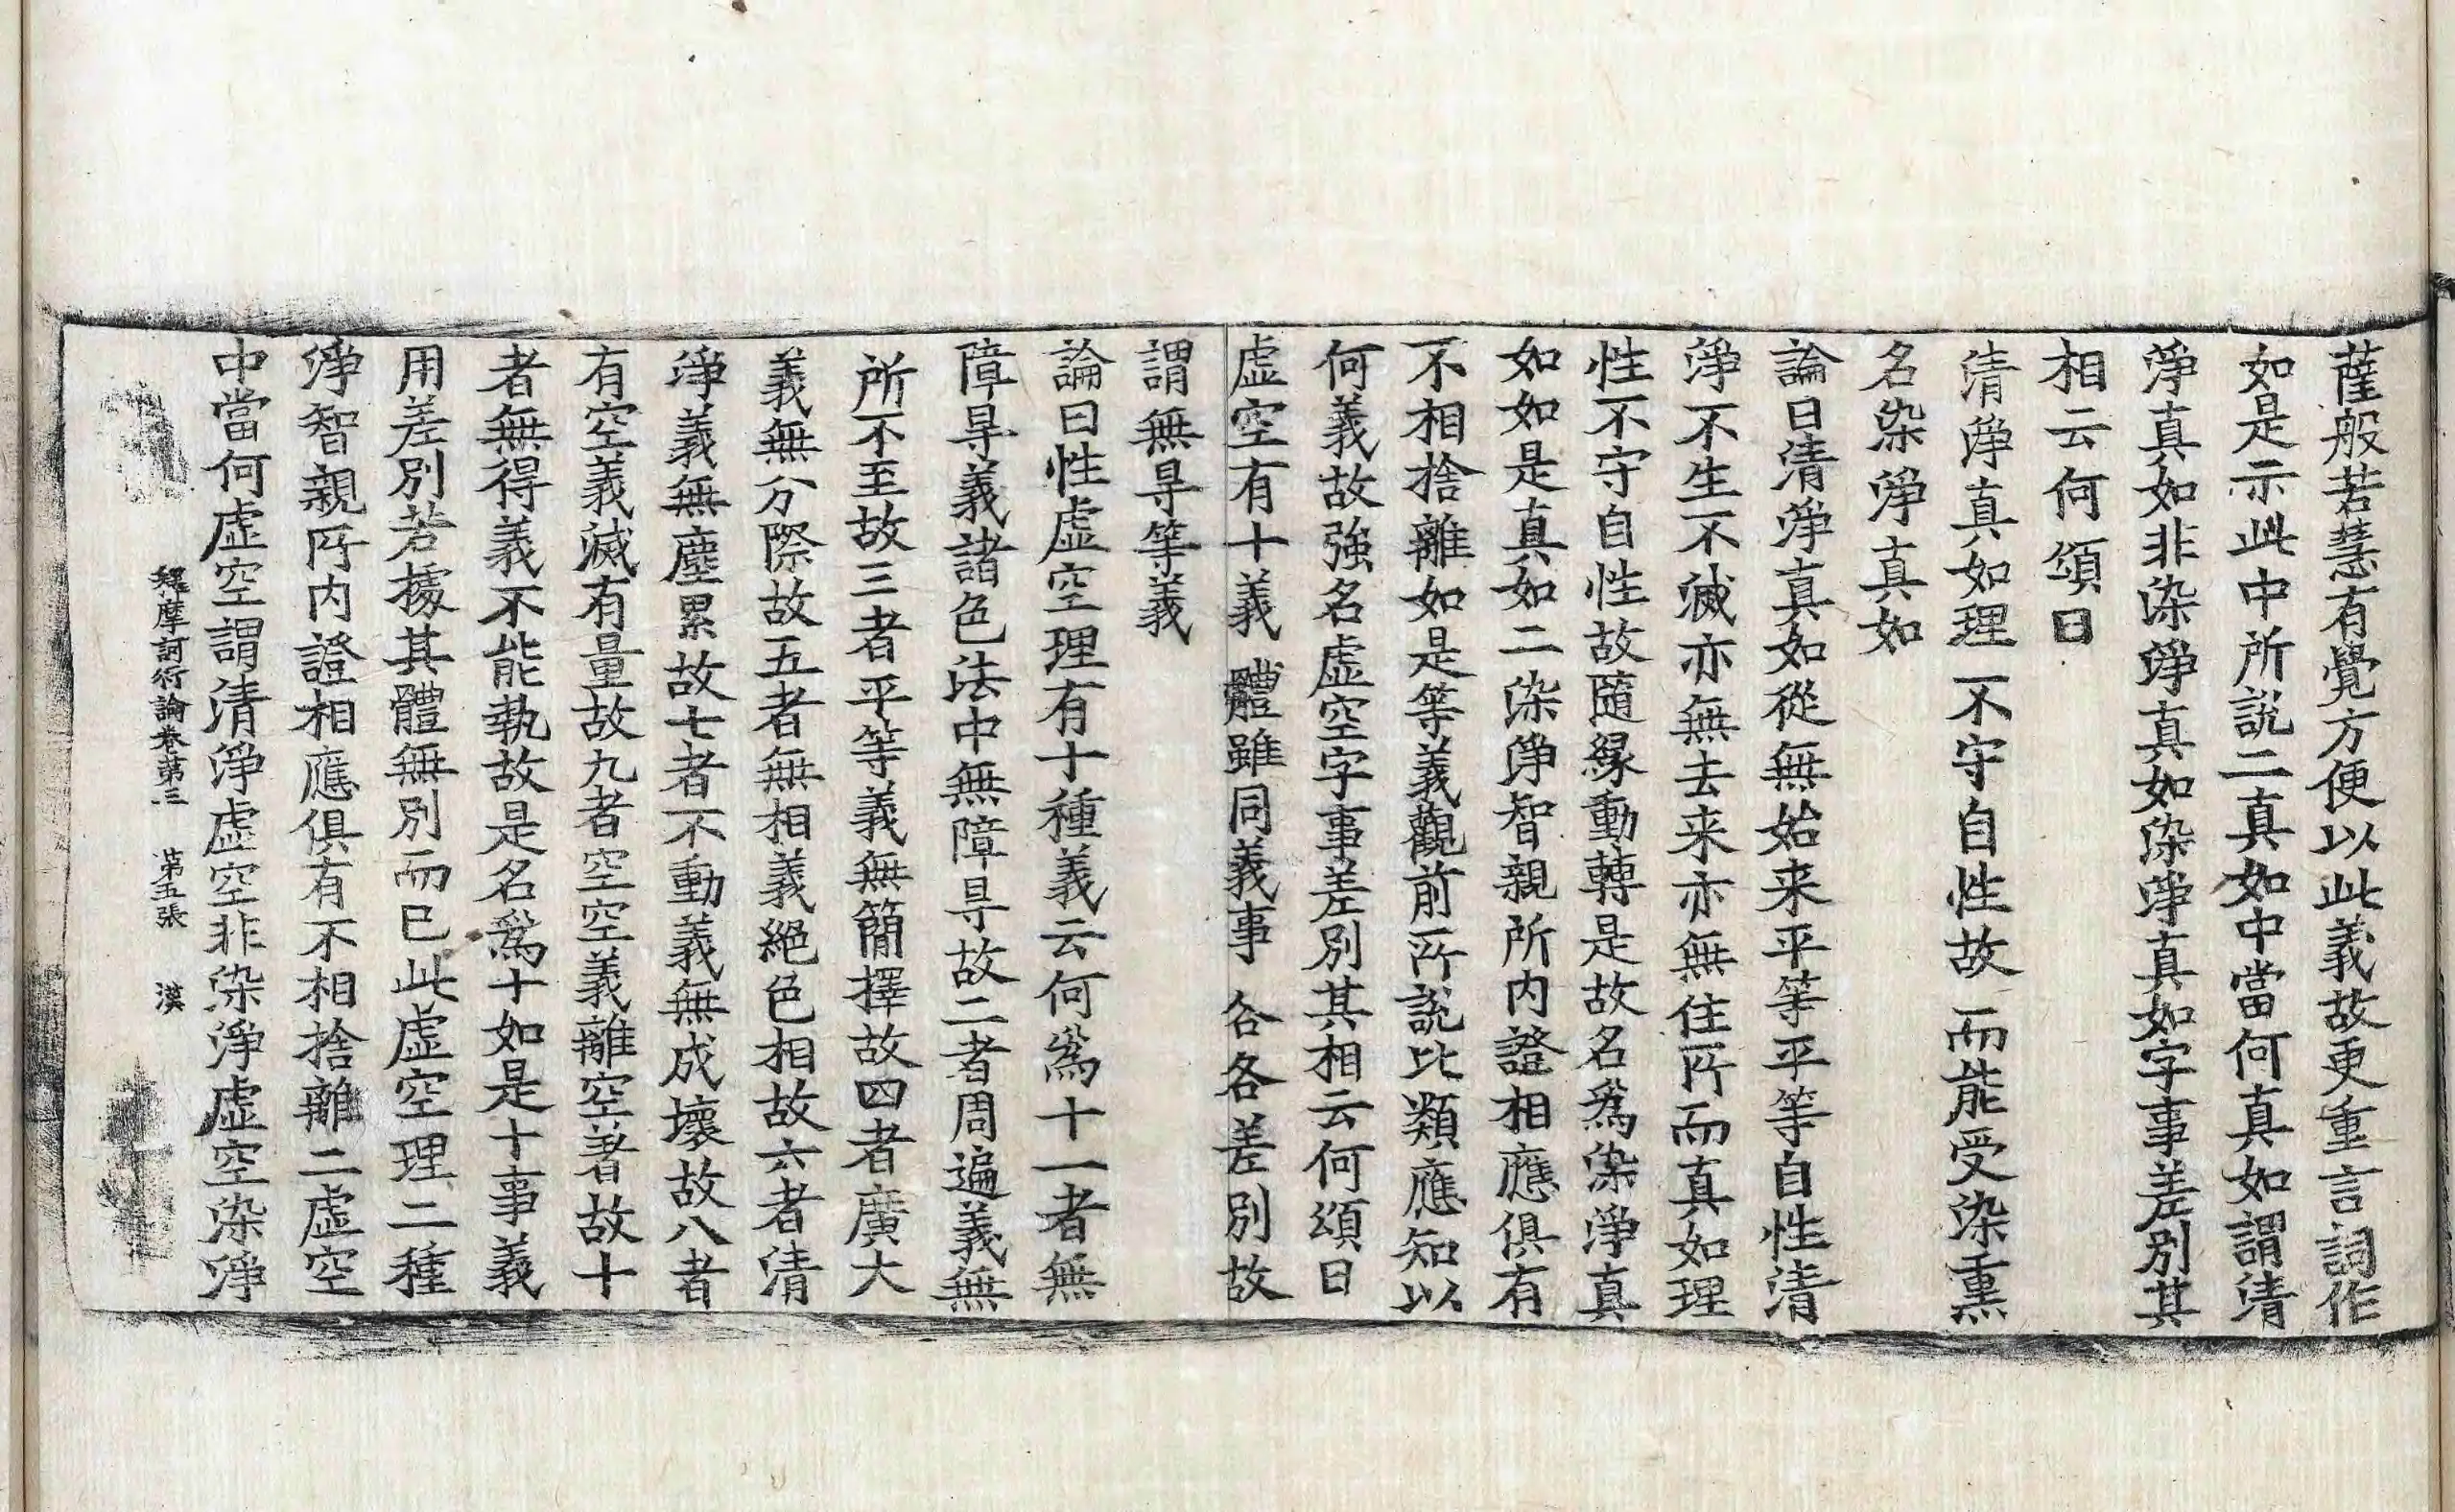 薩般若慧有覺方便以此義故更重言詞作
如是示此中所說二真如中當何真如謂清
淨真如非染淨真如染淨真如字事差別其
相云何頌曰
清淨真如理　不守自性故　而能受染熏
名染淨真如
論曰清淨真如從無始来平等平等自性清
淨不生不滅亦無去来亦無住所而真如理
性不守自性故隨緣動轉是故名爲染淨真
如如是真如二染淨智親所内證相應俱有
不相捨離如是等義觀前所說比類應知以
何義故強名虛空字事差別其相云何頌曰
虛空有十義　體雖同義事　各各差別故
謂無㝵等義
論曰性虛空理有十種義云何爲十一者無
障㝵義諸色法中無障㝵故二者周遍義無
所不至故三者平等義無簡擇故四者廣大
義無分際故五者無相義絕色相故六者清
淨義無塵累故七者不動義無成壞故八者
有空義滅有量故九者空空義離空著故十
者無得義不能執故是名爲十如是十事義
用差別若據其體無別而已此虛空理二種
淨智親所内證相應俱有不相捨離二虛空
中當何虛空謂清淨虛空非染淨虛空染淨
釋摩訶衍論卷第三　第五張　漠